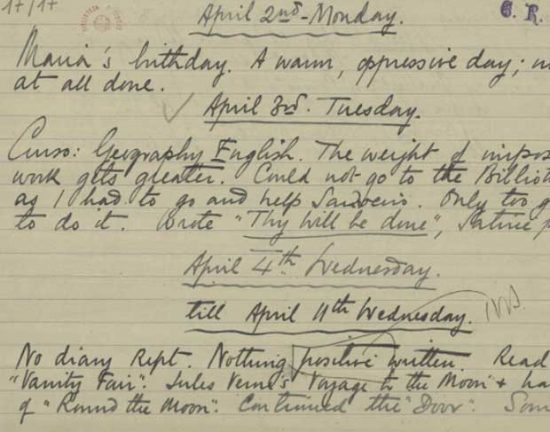 17/17
April 2nd - Monday.
C. R.
Maria's birthday. A warm, oppressive day; 
at all done.
April 3rd. Tuesday.
Curso: Geography English. The weight of impos
work gets greater. Could not go to the Bibliot
as I had to go and help Sarveiro. Only too g
to do it. Wrote "Thy will be done", Satire
April 4th Wednesday.
till April 11th Wednesday.
No diary kept. Nothing positive written. Read
"Vanity Fair". Jules Verne's Voyage to the Moon & ha
of "Round the Moon". Continued the "Door". Som